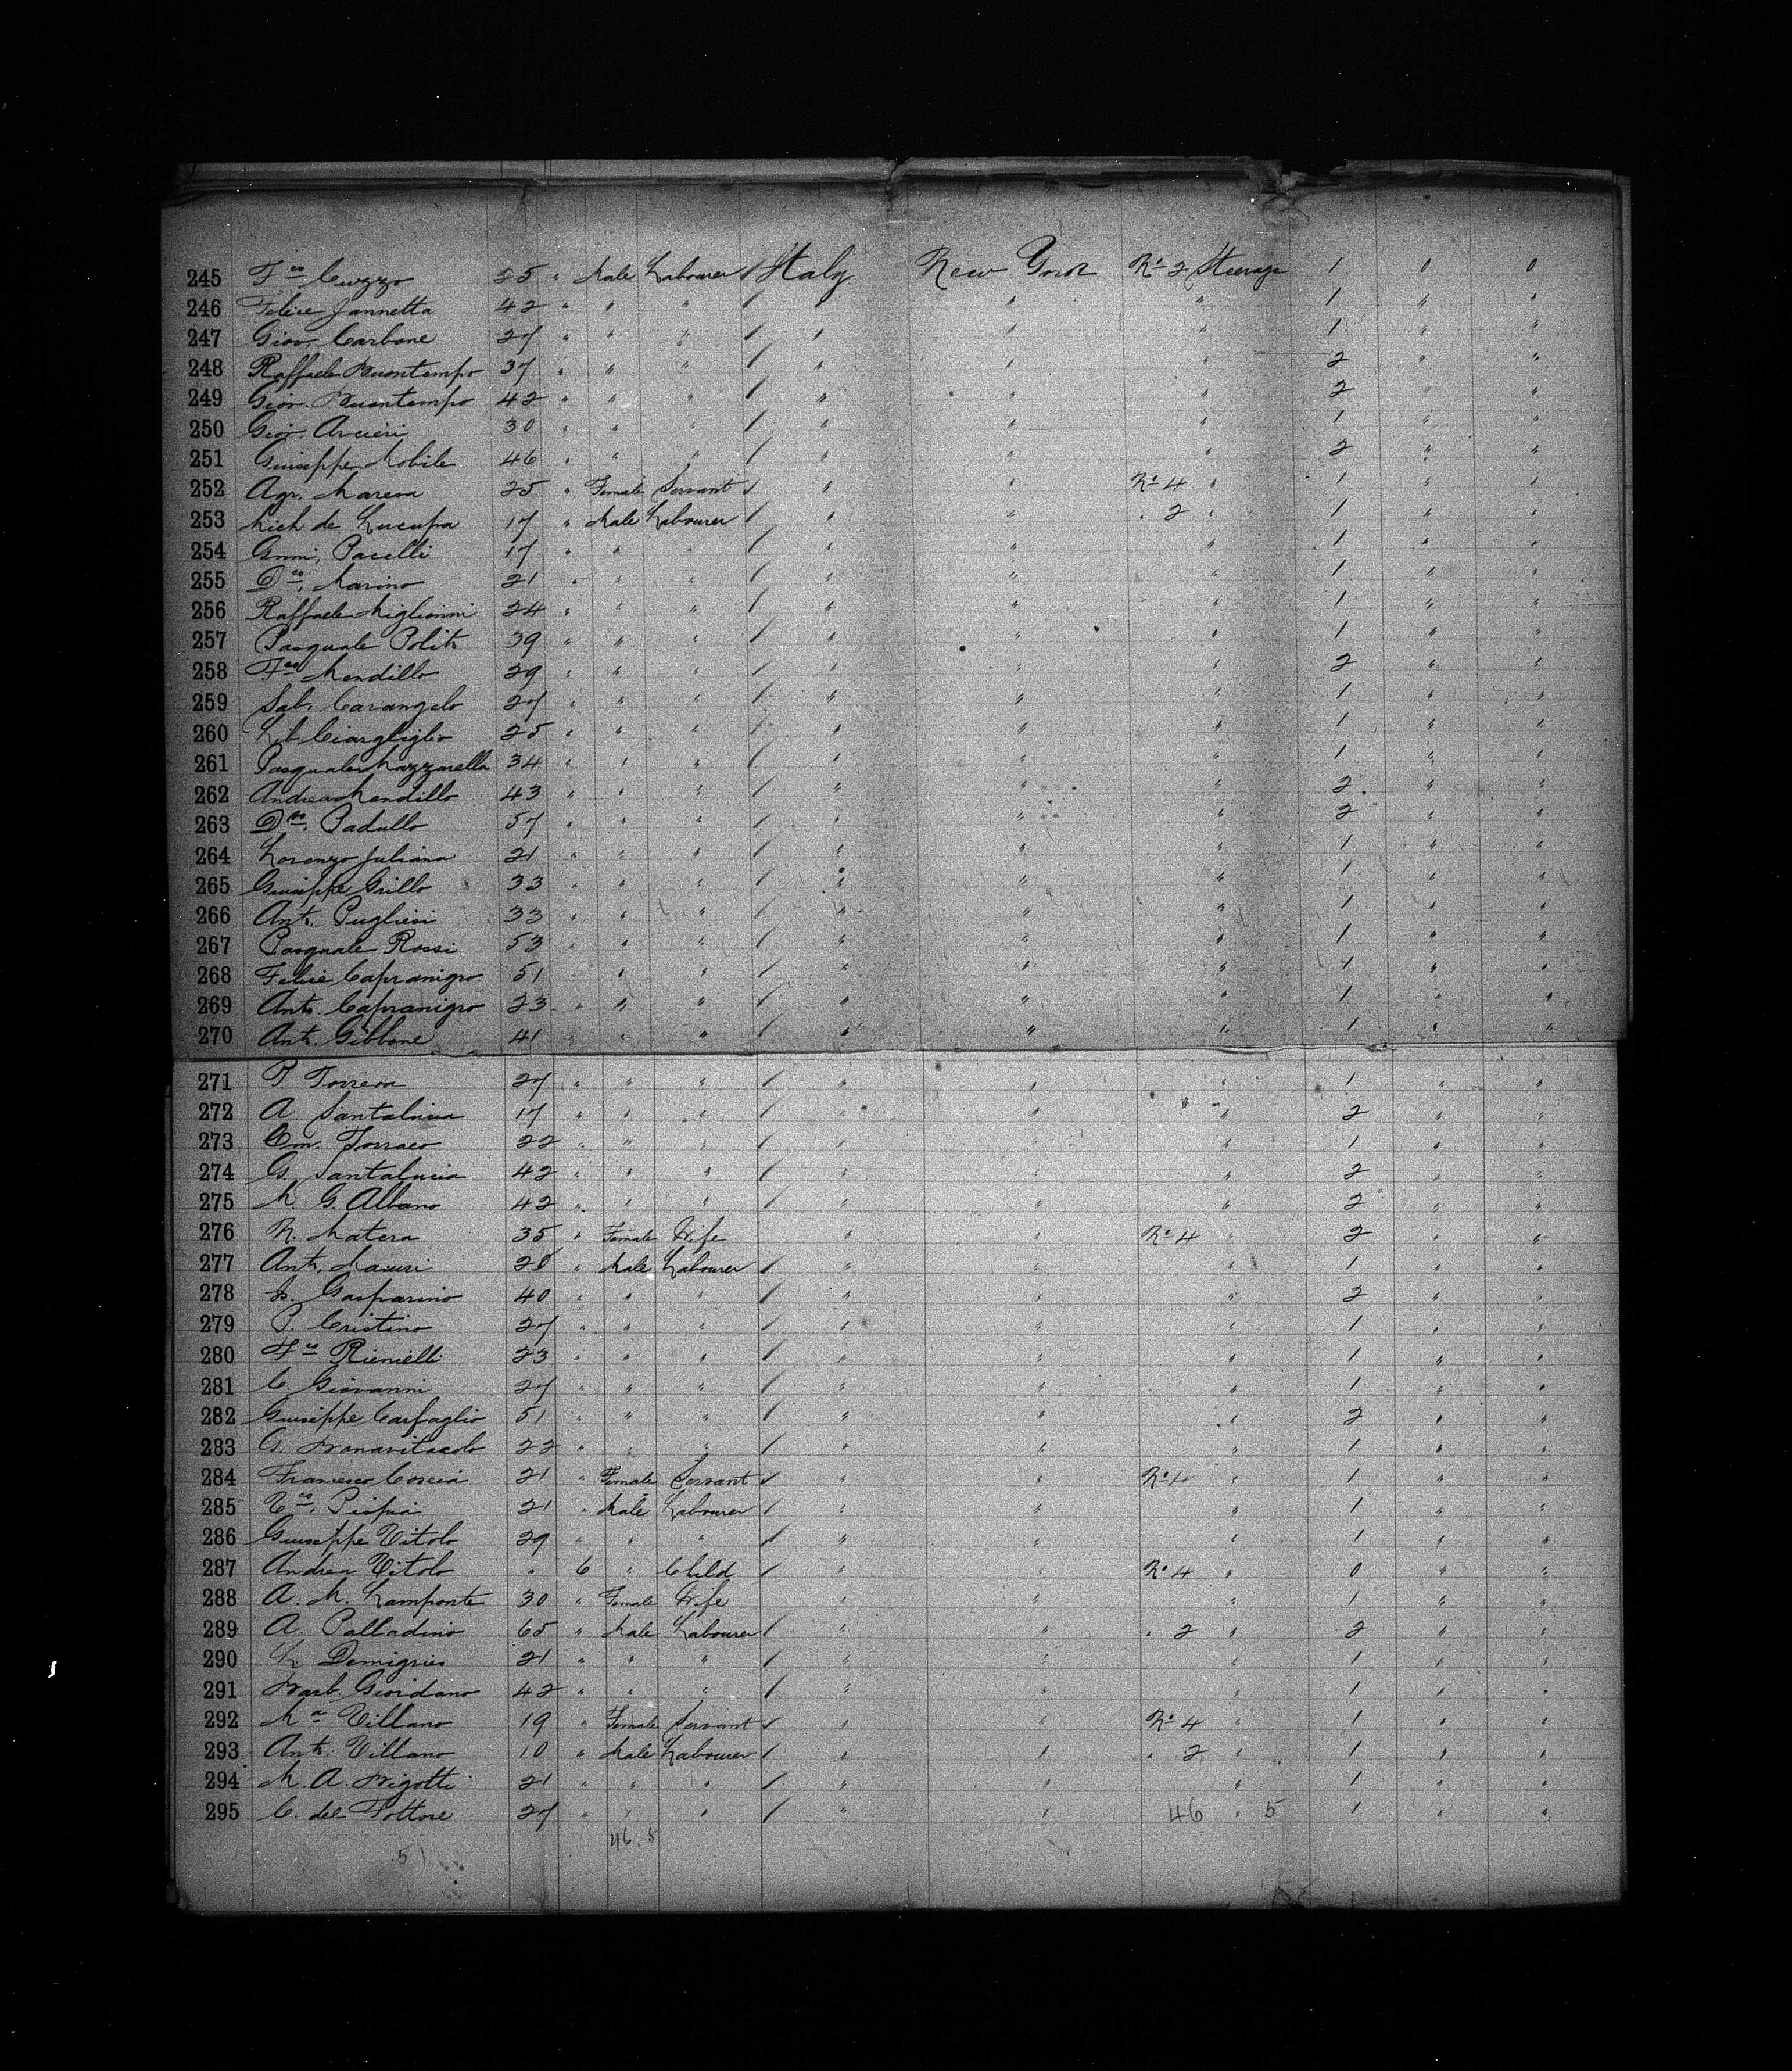 245 F.co Cuzzo 25 " Male Labourer / Italy New York No 2 Steerage 1 0 0
246 Felice Jannetta 42 " " " / " " 1 " "
247 Giov. Carbone 27 " " " / " " " 1 " "
248 Raffaele Buontempo 37 " " " / " " " 2 " "
249 Giov. Buontempo 42 " " " / " " " 2 " "
250 Giov. Arcieri 30 " " " / " " " 1 " "
251 Guiseppe Nobile 46 " " " / " " " 2 " "
252 Agr. Maresa 25 " Female Servant / " " No 4 " 1 " "
253 Mich de Lucupa 17 " Male Labourer / " " " 2 " 1 " "
254 Pacelli 17 " " " / " " " 1 " "
255 D.co, Marino 21 " " " / " " " 1 " "
256 Raffaele Miglionni 24 " " " / " " " 1 " "
257 Pasquale Polito 39 " " " / " " " 1 " "
258 F.co Mendillo 29 " " " / " " " 2 " "
259 Sab. Carangelo 27 " " " / " " " 1 " "
260 Lib. 25 " " " / " " " 1 " "
261 Pasquale Mazzarella 34 " " " / " " " 1 " "
262 Andrea Mendillo 43 " " " / " " " 2 " "
263 D.co, Padullo 57 " " " / " " " 2 " "
264 Lorenzo Juliana 21 " " " / " " " 1 " "
265 Guiseppe Grillo 33 " " " / " " " 1 " "
266 Ant. Pugliesi 33 " " " / " " " 1 " "
267 Pasquale Rossi 53 " " " / " " " 1 " "
268 Felice Capranigro 51 " " " / " " " 1 " "
269 Anto. Capranigro 23 " " " / " " " 1 " "
270 Ant. Gibbone 41 " " " / " " " 1 " "
271 P. Torrera 27 " " " / " " " 1 " "
272 A. Santalucia 17 " " " / " " " 2 " "
273 Em. Torraco 22 " " " / " " " 1 " "
274 G. Santalucia 42 " " " / " " " 2 " "
275 M. G. Albano 42 " " " / " " " 2 " "
276 N. Matera 35 " Female Wife " " No 4 " 2 " "
277 Ant. Mauri Male Labourer / " " " 1 " "
278 Gasparino 40 " " " / " " " 2 " "
279 P. Cristino 27 " " " / " " " 1 " "
280 F.co Rienielli 23 " " " / " " " 1 " "
281 C. Giovanni 27 " " " / " " " 1 " "
282 Guiseppe Carfaglio 51 " " " / " " " 2 " "
283 G. Bonavitacolo 22 " " " / " " " 1 " "
284 Francesco Coscia 21 " Female Servant / " " No 4 " 1 " "
285 V.co, 21 " Male Labourer / " " " 1 " "
286 Guiseppe Vitolo 29 " " " / " " " 1 " "
287 Andrea Vitolo " 6 " Child / " " No 4 " 0 " "
288 A. M. Lamponte 30 " Female Wife " " " 1 " "
289 A. Palladino 65 " Male Labourer / " " " 2 " 2 " "
290 Demigries 21 " " " / " " " 1 " "
291 Barb. Giordano 42 " " " / " " " 1 " "
292 Ma Villano 19 " Female Servant / " " No 4 " 1 " "
293 Ant. Villano 10 " Male Labourer / " " " 2 " 1 " "
294 M. A. Bigotti 21 " " " / " " " 1 " "
295 C. del Tottore 27 " " " / " " 46 " 5 1 " "
46. 5
51